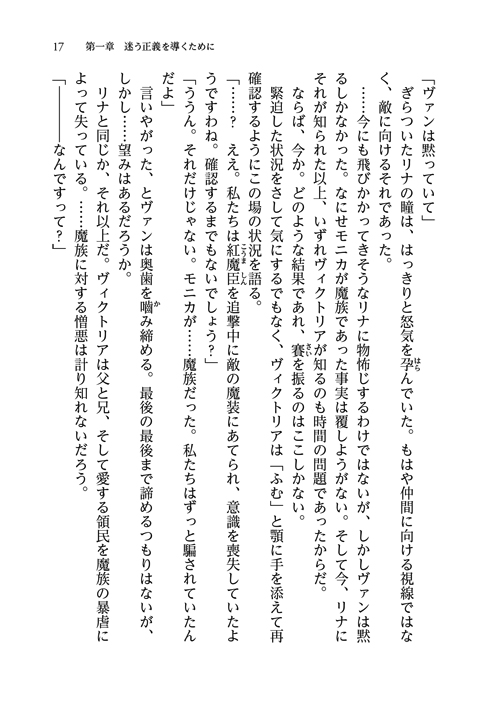 17　第一章　迷う正義を導くために
「ヴァンは黙っていて」
　ぎらついたリナの瞳は、はっきりと怒気を孕んでいた。もはや仲間に向ける視線ではな
く、敵に向けるそれであった。
　……今にも飛びかかってきそうなリナに物怖じするわけではないが、しかしヴァンは黙
るしかなかった。なにせモニカが魔族であった事実は覆しようがない。そして今、リナに
それが知られた以上、いずれヴィクトリアが知るのも時間の問題であったからだ。
　ならば、今か。どのような結果であれ、賽を振るのはここしかない。
　緊迫した状況をさして気にするでもなく、ヴィクトリアは「ふむ」と顎に手を添えて再
確認するようにこの場の状況を語る。
「……？　ええ。私たちは紅魔臣を追撃中に敵の魔装にあてられ、意識を喪失していたよ
うですわね。確認するまでもないでしょう？」
「ううん。それだけじゃない。モニカが……魔族だった。私たちはずっと騙されていたん
だよ」
　言いやがった、とヴァンは奥歯を嚙み締める。最後の最後まで諦めるつもりはないが、
しかし……望みはあるだろうか。
　リナと同じか、それ以上だ。ヴィクトリアは父と兄、そして愛する領民を魔族の暴虐に
よって失っている。……魔族に対する憎悪は計り知れないだろう。
「――――なんですって？」